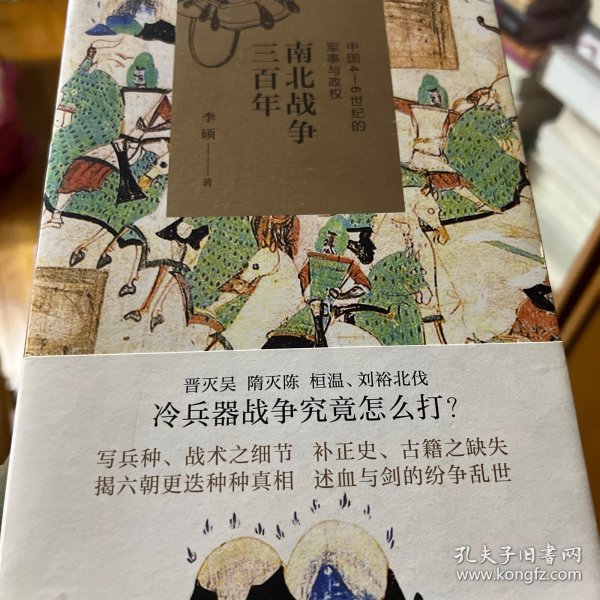 中国4—6世纪的
军事与政权
南北战争
三百年
李硕——著
晋灭吴 隋灭陈 桓温、刘裕北伐
冷兵器战争究竟怎么打?
写兵种、战术之细节 补正史、古籍之缺失
揭六朝更迭种种真相 述血与剑的纷争乱世
孔夫子旧书网
www.kongfz.com